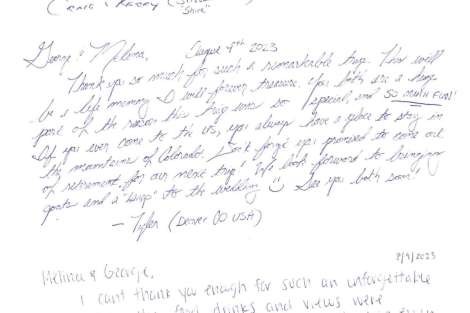 George & Melina, August 7th 2023
Thank you so much for such a remarkable trip. This will
be a life memory I will forever treasure. You both are a huge
part of the reason this trip was so special, and SO much FUN!
If you ever come to the US, you always have a place to stay in
the mountains of Colorado. Don't forget you promised to come out
of retirement for our next trip! We look forward to bringing
goats and a to the wedding ☺ See you both soon!
— Tyler (Denver CO USA)
8/9/2023
Melina & George,
I cant thank you enough for such an unforgettable
food, drinks and views were